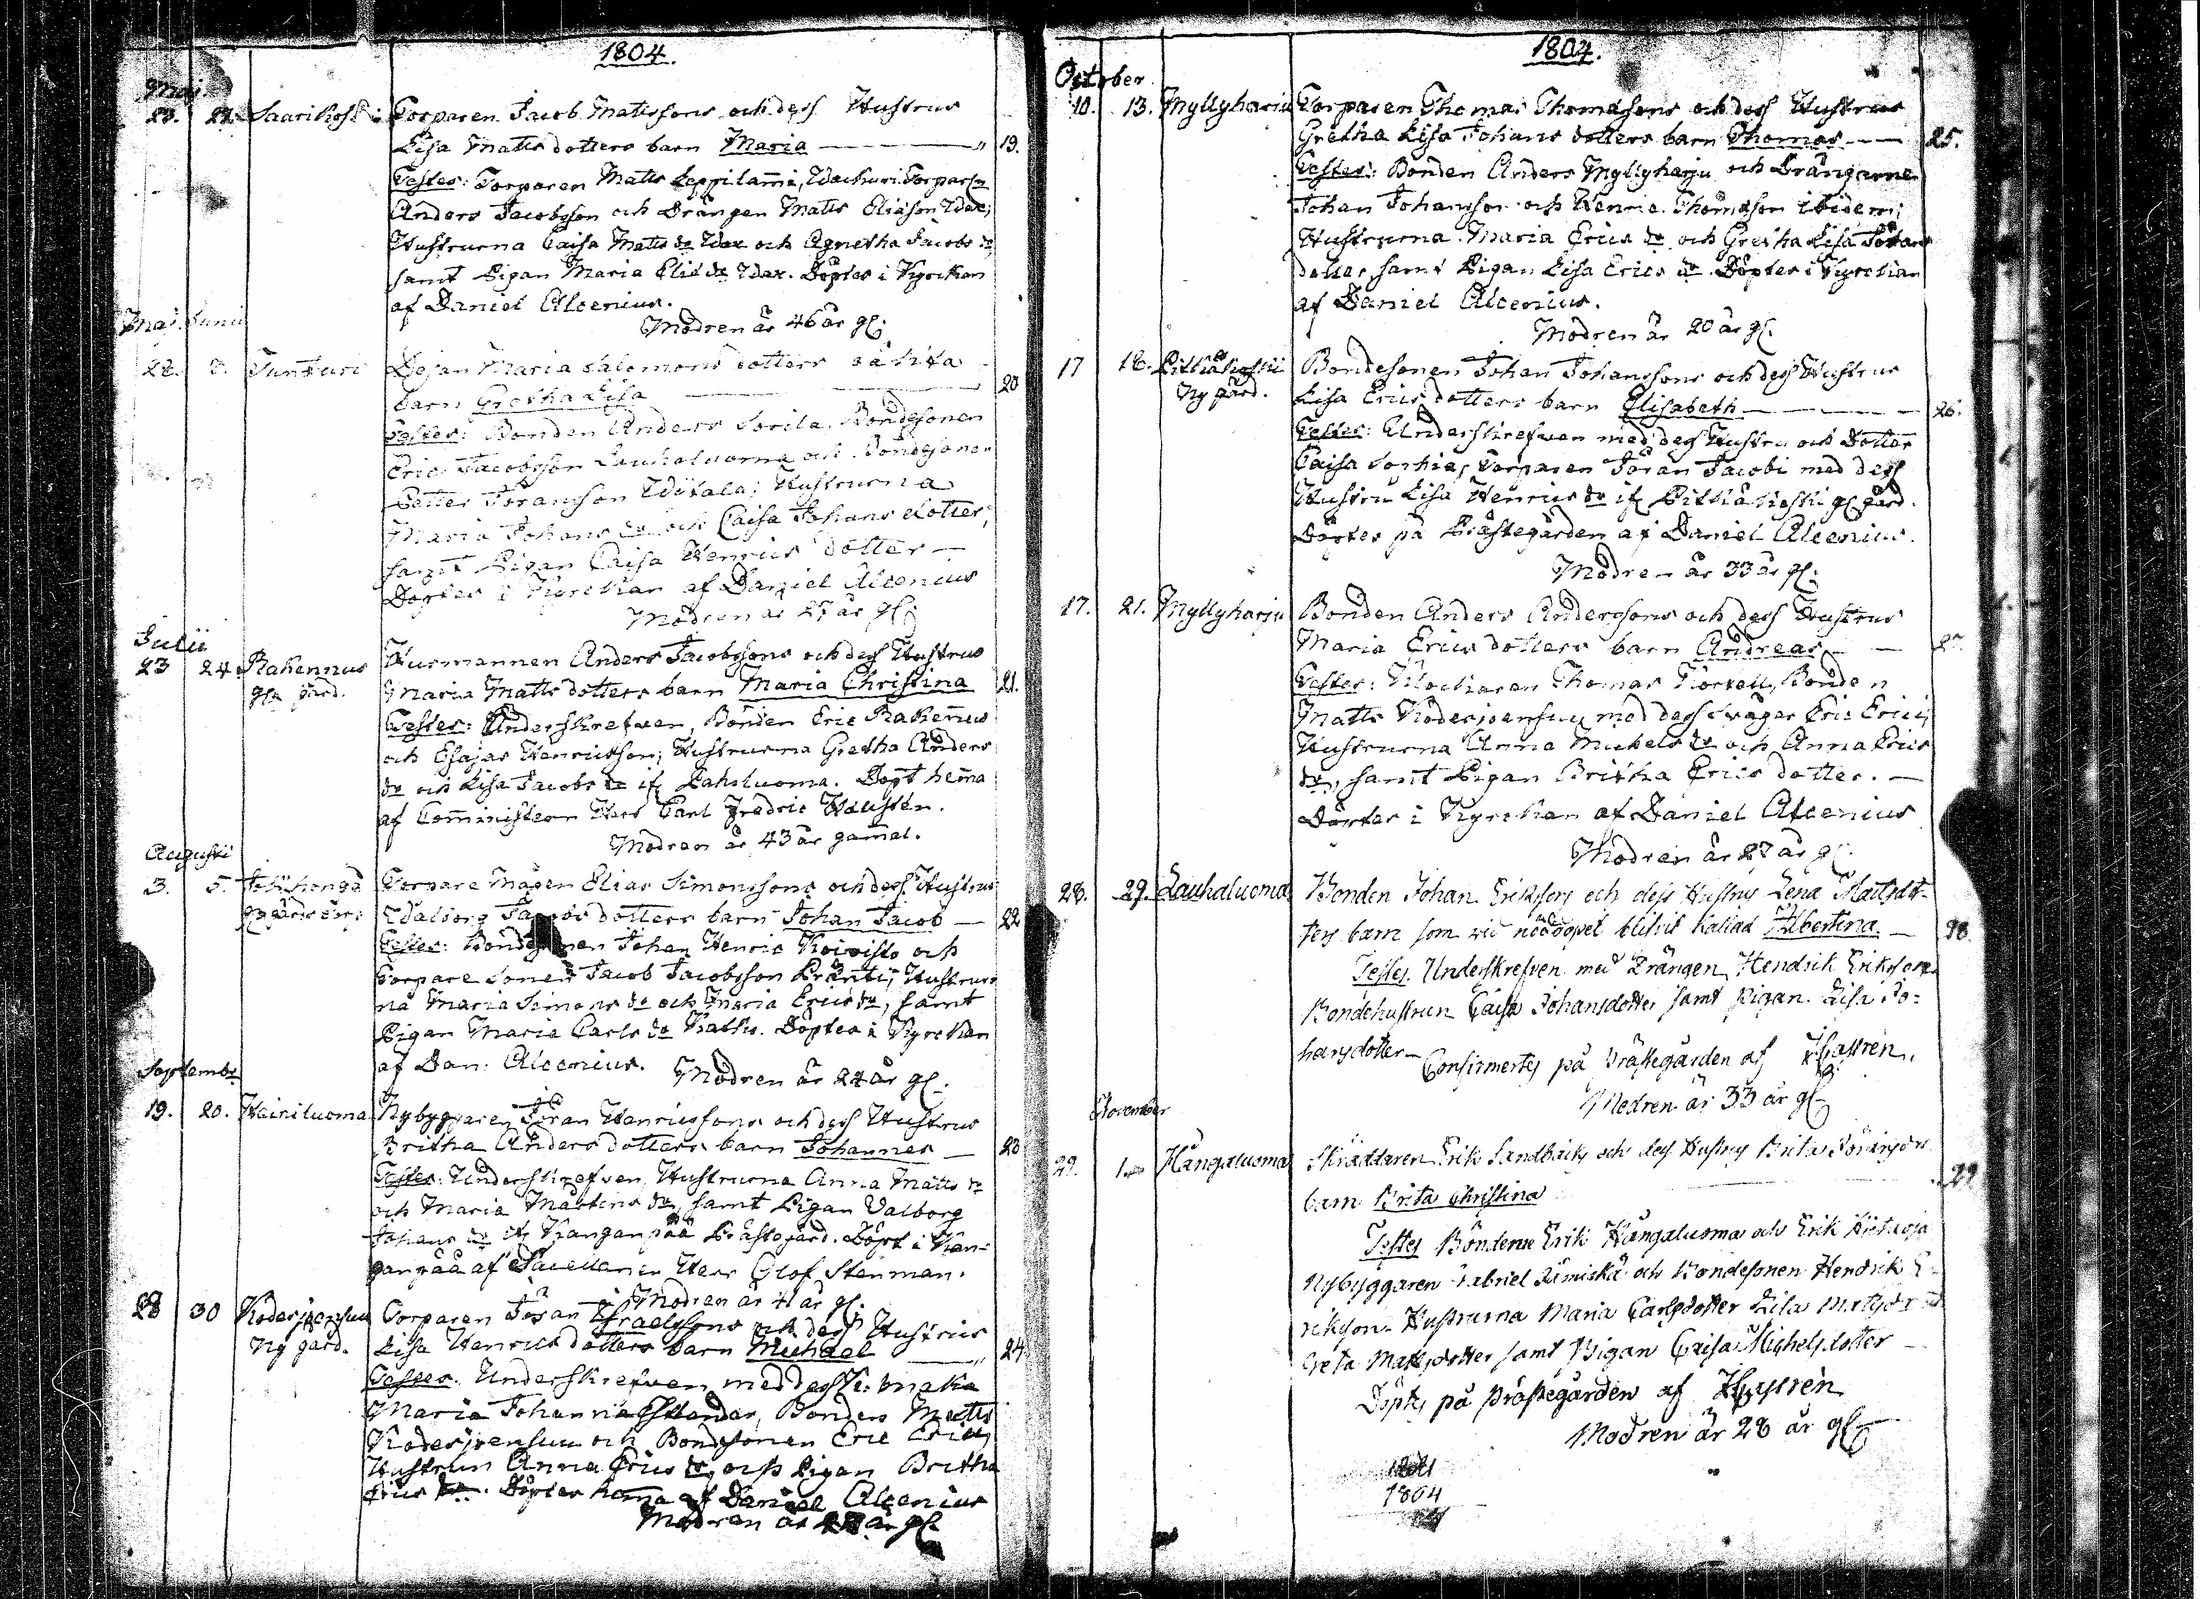 1804.
Maj
23. 27. Saarikoski Torparen Jacob Matissons och dess Hustrus
Lisa Matts dotters barn Maria — " 19.
Testes: Torparen Matts Leppilammi, Torparen
Anders Jacobsson och Drängen Matts Eliasson
Hustrurna Caisa Matts dr och Agnetha Jacobs dr
samt Pigan Maria Elis dr. Döptes i Kyrckan
af Daniel Alcenius.
Modren är 46 år gl:
Maj. Junii
22. 3. Tunturi Pigan Maria Salomons dotters oäkta
barn Gretha Lisa — 20
Testes: Bonden Anders Sorila. Bondesonen
Eric Jacobsson Lauhaluoma och Bondesonen
Petter Göransson; Hustrurna
Maria Johans dr och Caisa Johans dotter,
samt Pigan Caisa Henrics dotter —
Döptes i Kyrckan af Daniel Alcenius
Modren är 27 år gl:
Julii
23 24. Rahennus Husmannen Anders Jacobssons och dess Hustrus
gl. gård. Maria Matts dotters barn Maria Christina 21.
Testes: Underskrefven, Bonden Eric Rahennus
och Esajas Henricsson; Hustrurna Gretha Anders
dr och Lisa Jacobs dr if. Lahsluoma. Döpt hema
af Comministern Herr Carl Fredric
Modren är 43 år gamal.
Augusti
3. 5. Torpare Mågen Elias Simonssons och dess Hustrus
Walborg Jacobs dotters barn Johan Jacob — 22
Testes: Bondesonen Johan Henric Koivisto och
Torpare Sonen Jacob Jacobsson Präntti, Hustrur
na Maria Simons dr och Maria Erics dr, samt
Pigan Maria Carls dr. Döptes i Kyrckan
af Dan: Alcenius. Modren är 24 år gl.
Septembr
19. 20. Hairiluoma Nybyggaren Göran Henricssons och dess Hustrus
Britha Anders dotters barn Johannes — 23
Testes: Underskrefven, Hustrurna Anna Matts dr
och Maria Mårtens dr, samt Pigan Valborg
Johans dr if. Kanganpää Prästegård. Döpt i Kan-
ganpää af Herr Olof Stenman.
Modren är 41 år gl.
28 30 Koderjoensuu Torparen Göran Israelssons och dess Hustrus
Ny gård. Lisa Henrics dotters barn Michael — " 24
Testes. Underskrefven med dess K: maka
Maria Johanna, Bonden Matts
Koderjoensuu och Bondesonen Eric Erici,
Hustrun Anna Erics dr, och Pigan Britha
Erics dr. Döptes hema af Daniel Alcenius
Modren är år gl.
1804.
October
10. 13. Myllyharju Torparen Thomas Thomassons och dess Hustrus
Gretha Lisa Johans dotters barn Thomas — 25.
Testes: Bonden Anders Myllyharju och Drängarne
Johan Johansson och Henric Thomasson ibidem;
Hustrurna Maria Erics dr och Gretha Lisa Johans
dotter, samt Pigan Lisa Erics dr. Döptes i Kyrckan
af Daniel Alcenius.
Modren är 20 år gl.
17 18. Pitkäkoski Bondesonen Johan Johanssons och dess Hustrus
Ny gård. Lisa Erics dotters barn Elisabeth — 26.
Testes: Underskrefven med dess Hustru och Dotter
Caisa Sophia, Torparen Göran Jacobi med dess
Hustru Lisa Henrics dr if. Pitkäkoski gl. gård.
Döptes på Prästegården af Daniel Alcenius.
Modren är 33 år gl:
17. 21. Myllyharju Bonden Anders Anderssons och dess Hustrus
Maria Erics dotters barn Andreas — 27.
Testes: Klockaren Thomas, Bonden
Matts Koderjoensuu med dess Svåger Eric Erici;
Hustrurna Anna Mickels dr och Anna Erics
dr, samt Pigan Britha Erics dotter. —
Döptes i Kyrckan af Daniel Alcenius
Modren är 27 år gl.
28. 29. Lauhaluoma Bonden Johan Erikssons och dess Hustrus Lena Mattsdot-
ters barn som vid nöddopet blifvit kallad Albertina. — 28.
Testes. Underskrefven med Drängen Hendrik Eriksson
Bondehustrun Caisa Johansdotter samt Pigan Lisa Jo-
hansdotter — Confirmertes på Prästegården af
Modren är 33 år gl.
November
29. 1. Kangaluoma Skräddaren Erik Sandbäcks och dess Hustrus Brita Göransdrs
barn Brita Christina 29
Testes Bönderne Erik Kangaluoma och Erik Hietaoja
Nybyggaren Gabriel Rämiskä och Bondesonen Hendrik E-
riksson. Hustrurna Maria Carlsdotter Lisa Matsdr och
Greta Mattsdotter samt Pigan Caisa Michelsdotter —
Döptes på Prästegården af
Modren är 28 år gl.
1804